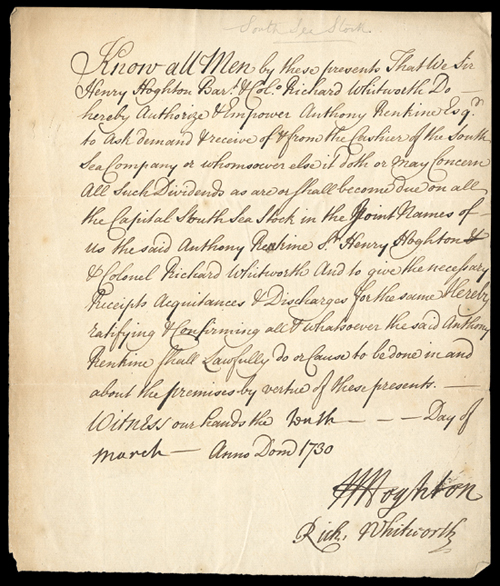 South Sea Stock
Know all Men by these presents That We Sir
Henry Hoghton Bart. & Colo. Richard Whitworth Do —
hereby Authorize & Empower Anthony Renkine Esqr.
to Ask demand & receive of & from the Cashier of the South
Sea Company or whomsoever else it doth or May Concern
All Such Dividends as are or shall become due on all
the Capital South Sea Stock in the Joint Names of —
us the said Anthony Renkine Sr. Henry Hoghton &
& Colonel Richard Whitworth And to give the necessary
Receipts Acquitances & Discharges for the same Hereby
ratifying & Confirming all & whatsoever the said Anthony
Renkine shall Lawfully do or Cause to be done in and
about the premises by vertue of these presents. —
Witness our hands the tenth — — — Day of
March — Anno Dom 1730
HHoghton
Rich. Whitworth